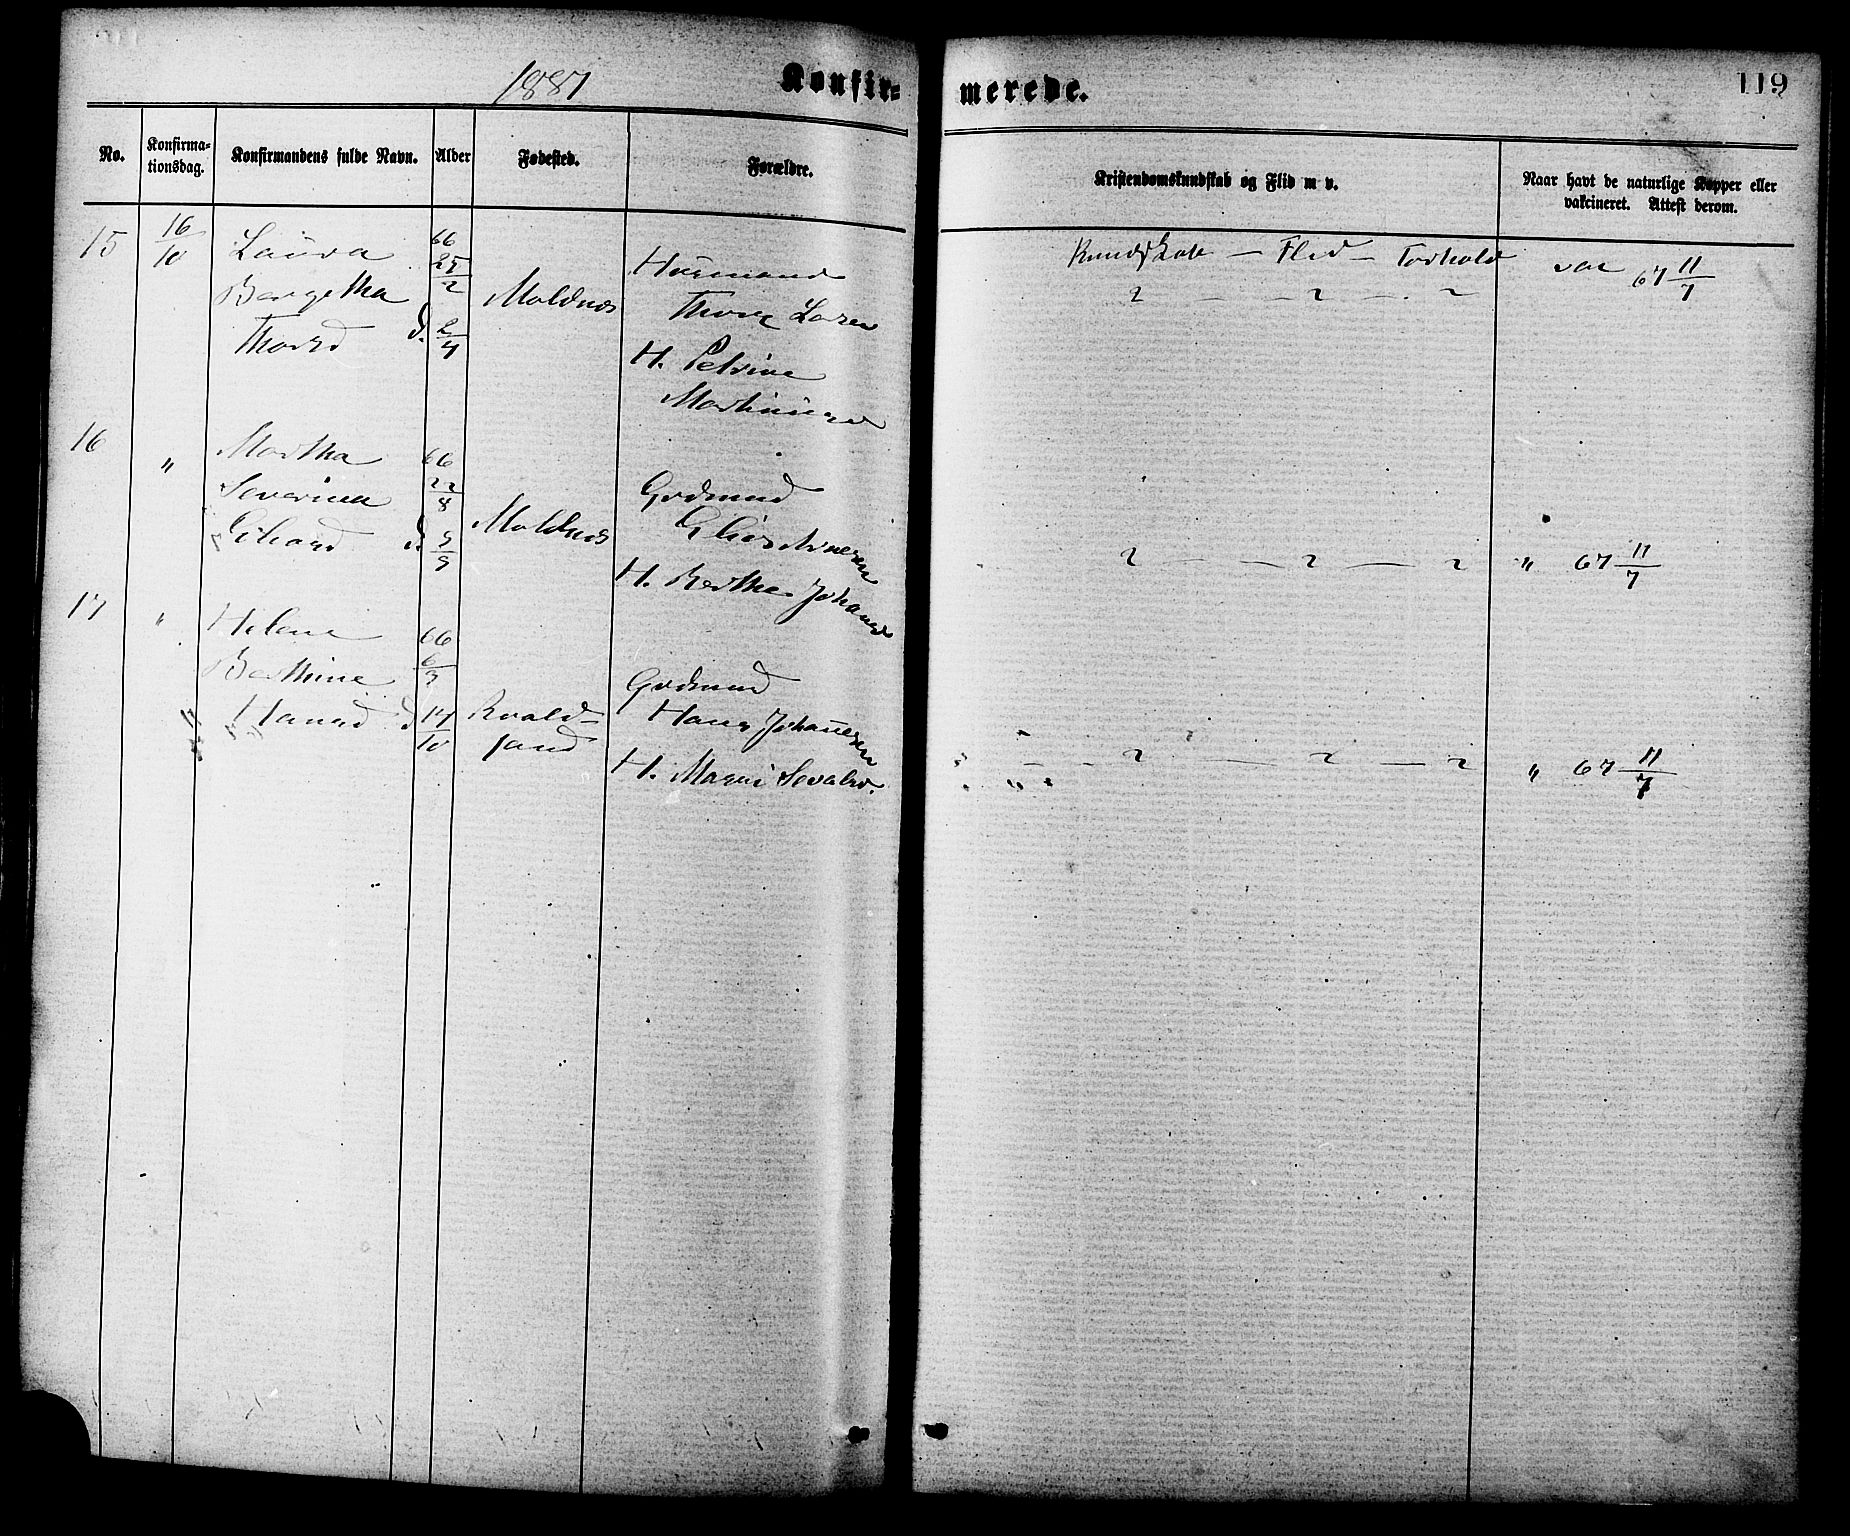 1881
Konfir=
merede.
119
No.
Konfirma-
tionsdag.
Konfirmandens fulde Navn.
Alder
Fødested.
Forældre.
Kristendomskundskab og Flid m v.
Naar havt de naturlige Kopper eller
vakcineret. Attest derom.
15
16/10
Laura
Bergetha
Thorsd
66
25/2
d. 2/4
Moldnes
Husmand
Thore Larsen
H. Petrine
Kundskab — Flid — Forhold
2 — 2 — 2
vac 67 11/7
16
"
Martha
Severine
66
22/8
d. 5/9
Moldnes
Grdmand
H. Bertha Johansd
2 — 2 — 2
" 67 11/7
17
"
Helene
Berthine
Hansd
66
6/9
d 17/10
Roald-
sand
Grdmand
Hans Johanesen
H. Magni Sevalsd.
2 — 2 — 2
" 67 11/7